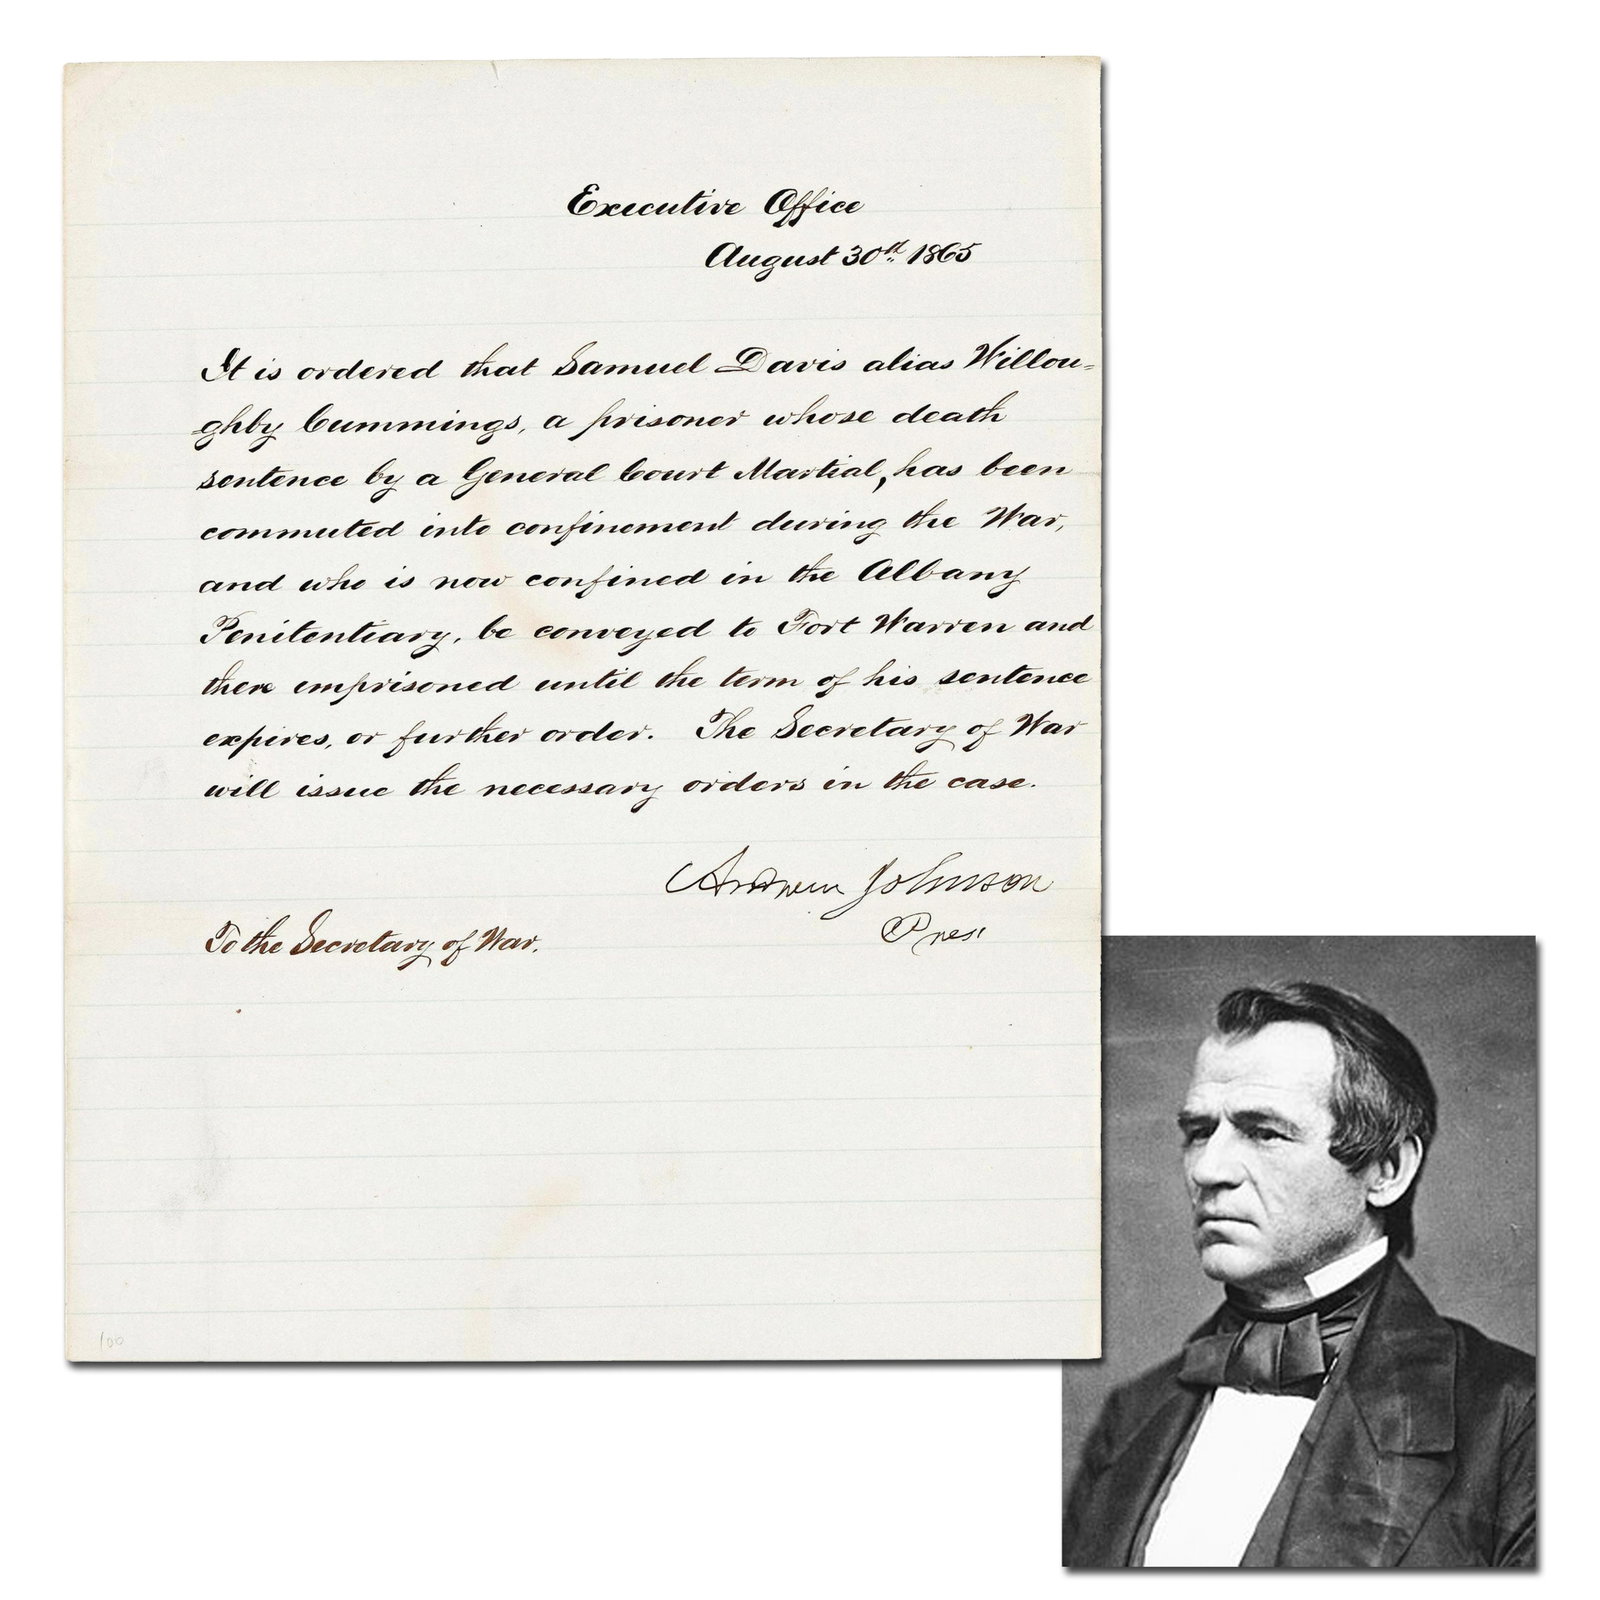 Executive Office
August 30th. 1865
It is ordered that Samuel Davis alias Willou=
ghby Cummings, a prisoner whose death
sentence by a General Court Martial, has been
commuted into confinement during the War,
and who is now confined in the Albany
Penitentiary, be conveyed to Fort Warren and
there imprisoned until the term of his sentence
expires, or further order. The Secretary of War
will issue the necessary orders in the case.
Andrew Johnson
Pres.
To the Secretary of War.
100